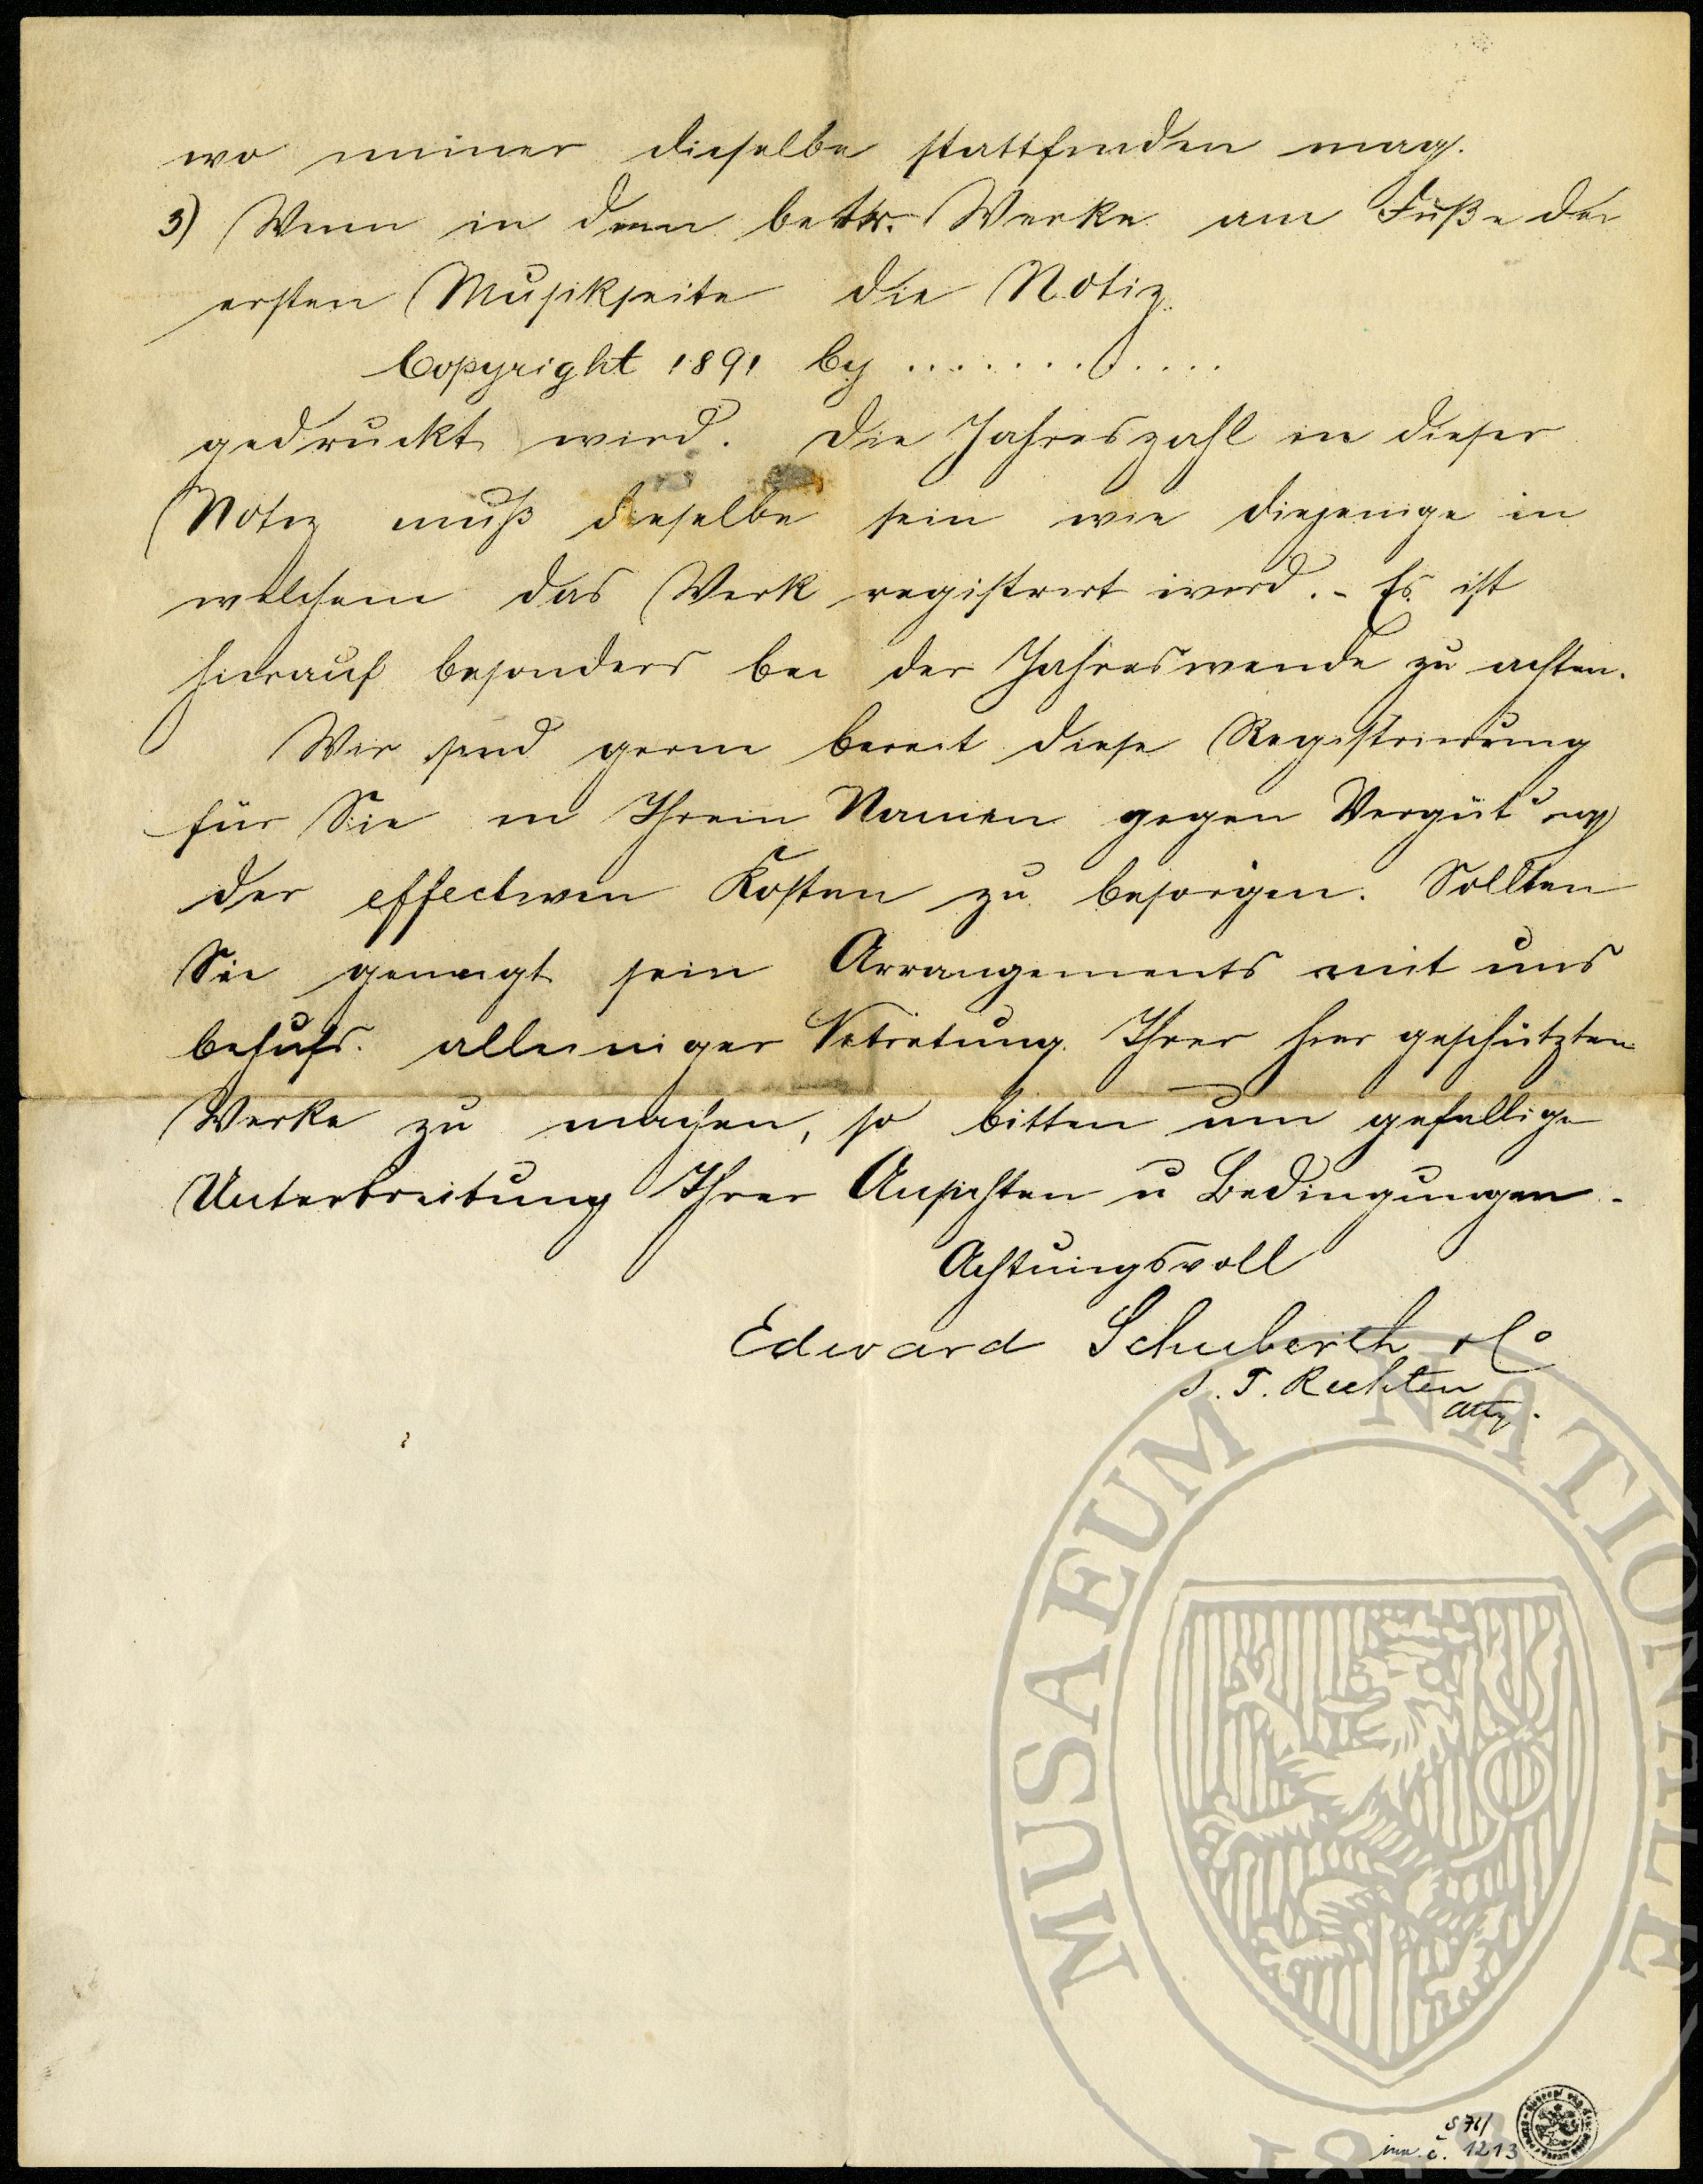 wo immer dieselbe stattfinden mag.
3) Wenn in dem betr. Werke am Fuße der
ersten Musikseite die Notiz
Copyright 1891 by ............
gedruckt wird. Die Jahreszahl in dieser
Notiz muß dieselbe sein wie diejenige in
welchem das Werk registrirt wird. - Es ist
hierauf besonders bei der Jahreswende zu achten.
Wir sind gerne bereit diese Registrierung
für Sie in Ihrem Namen gegen Vergütung
der effectiven Kosten zu besorgen. Sollten
Sie geneigt sein Arrangements mit uns
behufs alleiniger Vetretung Ihrer hier geschützten
Werke zu machen, so bitten um gefällige
Unterbreitung Ihrer Ansichten u Bedingungen -
Achtungsvoll
Edward Schuberth & Co
J. F. 
Atty.
MUSAEUM NATIONALE
1818
S 76/
inv. č. 1213